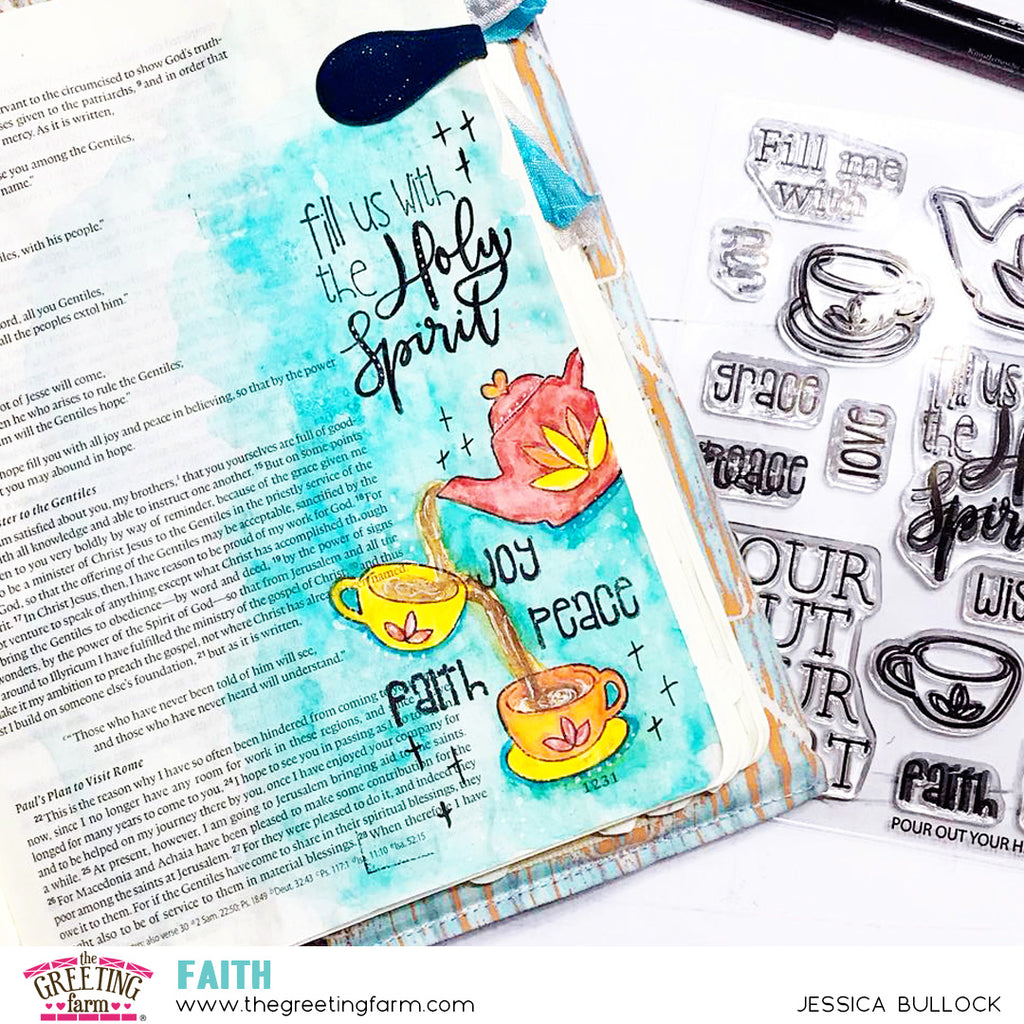 ervant to the circumcised to show God's truth-
ses given to the patriarchs, 9 and in order that
mercy. As it is written,
se you among the Gentiles,
name."
les, with his people."
ord, all you Gentiles,
all the peoples extol him."
ot of Jesse will come,
en he who arises to rule the Gentiles;
m will the Gentiles hope."
hope fill you with all joy and peace in believing, so that by the power
t you may abound in hope.
ster to the Gentiles
m satisfied about you, my brothers, that you yourselves are full of good-
ith all knowledge and able to instruct one another. 15 But on some points
en to you very boldly by way of reminder, because of the grace given me
be a minister of Christ Jesus to the Gentiles in the priestly service of the
God, so that the offering of the Gentiles may be acceptable, sanctified by the
irit. 17 In Christ Jesus, then, I have reason to be proud of my work for God. 18 For
ot venture to speak of anything except what Christ has accomplished through
bring the Gentiles to obedience—by word and deed, 19 by the power of signs
wonders, by the power of the Spirit of God—so that from Jerusalem and all the
around to Illyricum I have fulfilled the ministry of the gospel of Christ; 20 and thus
ake it my ambition to preach the gospel, not where Christ has already been named,
st I build on someone else's foundation, 21 but as it is written,
"Those who have never been told of him will see,
and those who have never heard will understand."
Paul's Plan to Visit Rome
22 This is the reason why I have so often been hindered from coming
now, since I no longer have any room for work in these regions, and
longed for many years to come to you, 24 I hope to see you in passing as I go to
and to be helped on my journey there by you, once I have enjoyed your company for
a while. 25 At present, however, I am going to Jerusalem bringing aid to the saints.
26 For Macedonia and Achaia have been pleased to make some contribution for the
poor among the saints at Jerusalem. 27 For they were pleased to do it, and indeed they
owe it to them. For if the Gentiles have come to share in their spiritual blessings, they
ght also to be of service to them in material blessings. 28 When therefore I have
also verse 30 2 Sam. 22:50; Ps. 18:49 Deut. 32:43 Ps. 117:1 Isa. 11:10 Isa. 52:15
fill us with
the Holy
Spirit
JOY
Peace
Faith
1231
Fill me
with
grace
love
Peace
fill us
the H
Spir
OUR
UT
UR
RT
wis
Faith
POUR OUT YOUR H
the
GREETING
farm®
FAITH
www.thegreetingfarm.com
JESSICA BULLOCK